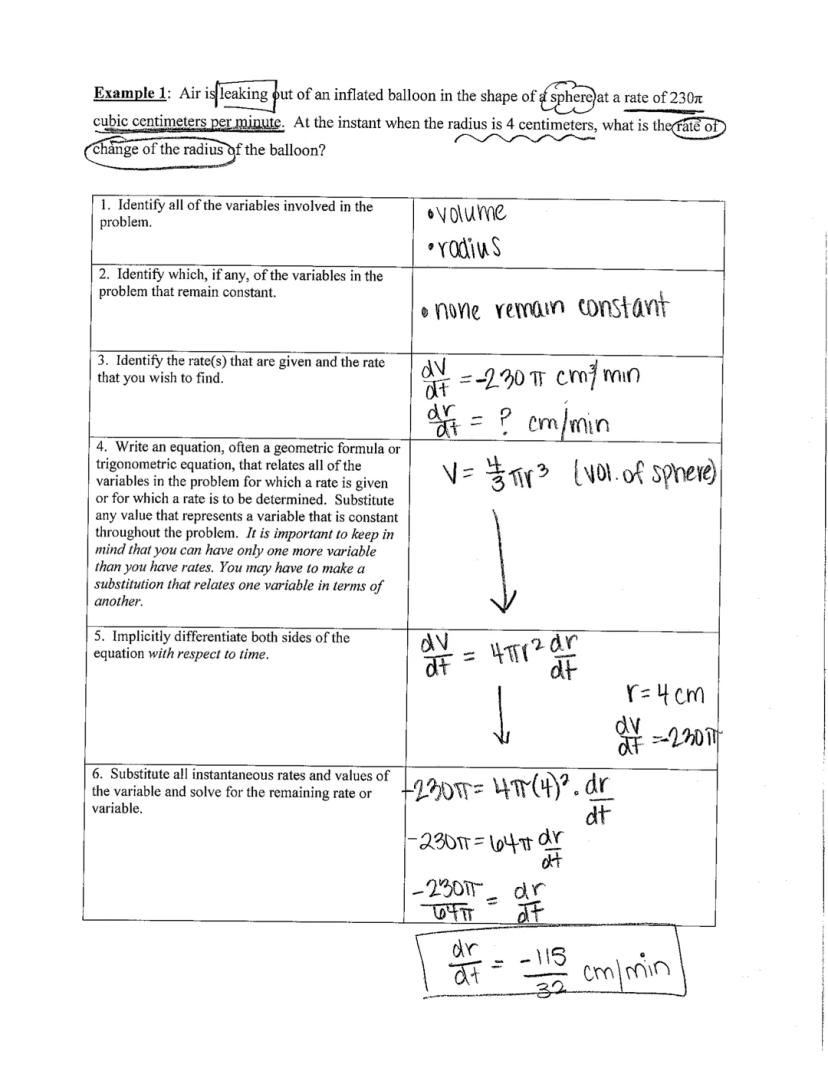 Example 1: Air is leaking out of an inflated balloon in the shape of a sphere at a rate of 230π
cubic centimeters per minute. At the instant when the radius is 4 centimeters, what is the rate of
change of the radius of the balloon?
1. Identify all of the variables involved in the
problem.
• volume
• radius
2. Identify which, if any, of the variables in the
problem that remain constant.
• none remain constant
3. Identify the rate(s) that are given and the rate
that you wish to find.
dV/dt = -230 π cm³/min
dr/dt = ? cm/min
4. Write an equation, often a geometric formula or
trigonometric equation, that relates all of the
variables in the problem for which a rate is given
or for which a rate is to be determined. Substitute
any value that represents a variable that is constant
throughout the problem. It is important to keep in
mind that you can have only one more variable
than you have rates. You may have to make a
substitution that relates one variable in terms of
another.
V = 4/3 πr³ (vol. of sphere)
5. Implicitly differentiate both sides of the
equation with respect to time.
dV/dt = 4πr² dr/dt
r = 4 cm
dV/dt = -230π
6. Substitute all instantaneous rates and values of
the variable and solve for the remaining rate or
variable.
-230π = 4π(4)² · dr/dt
-230π = 64π dr/dt
-230π/64π = dr/dt
dr/dt = -115/32 cm/min